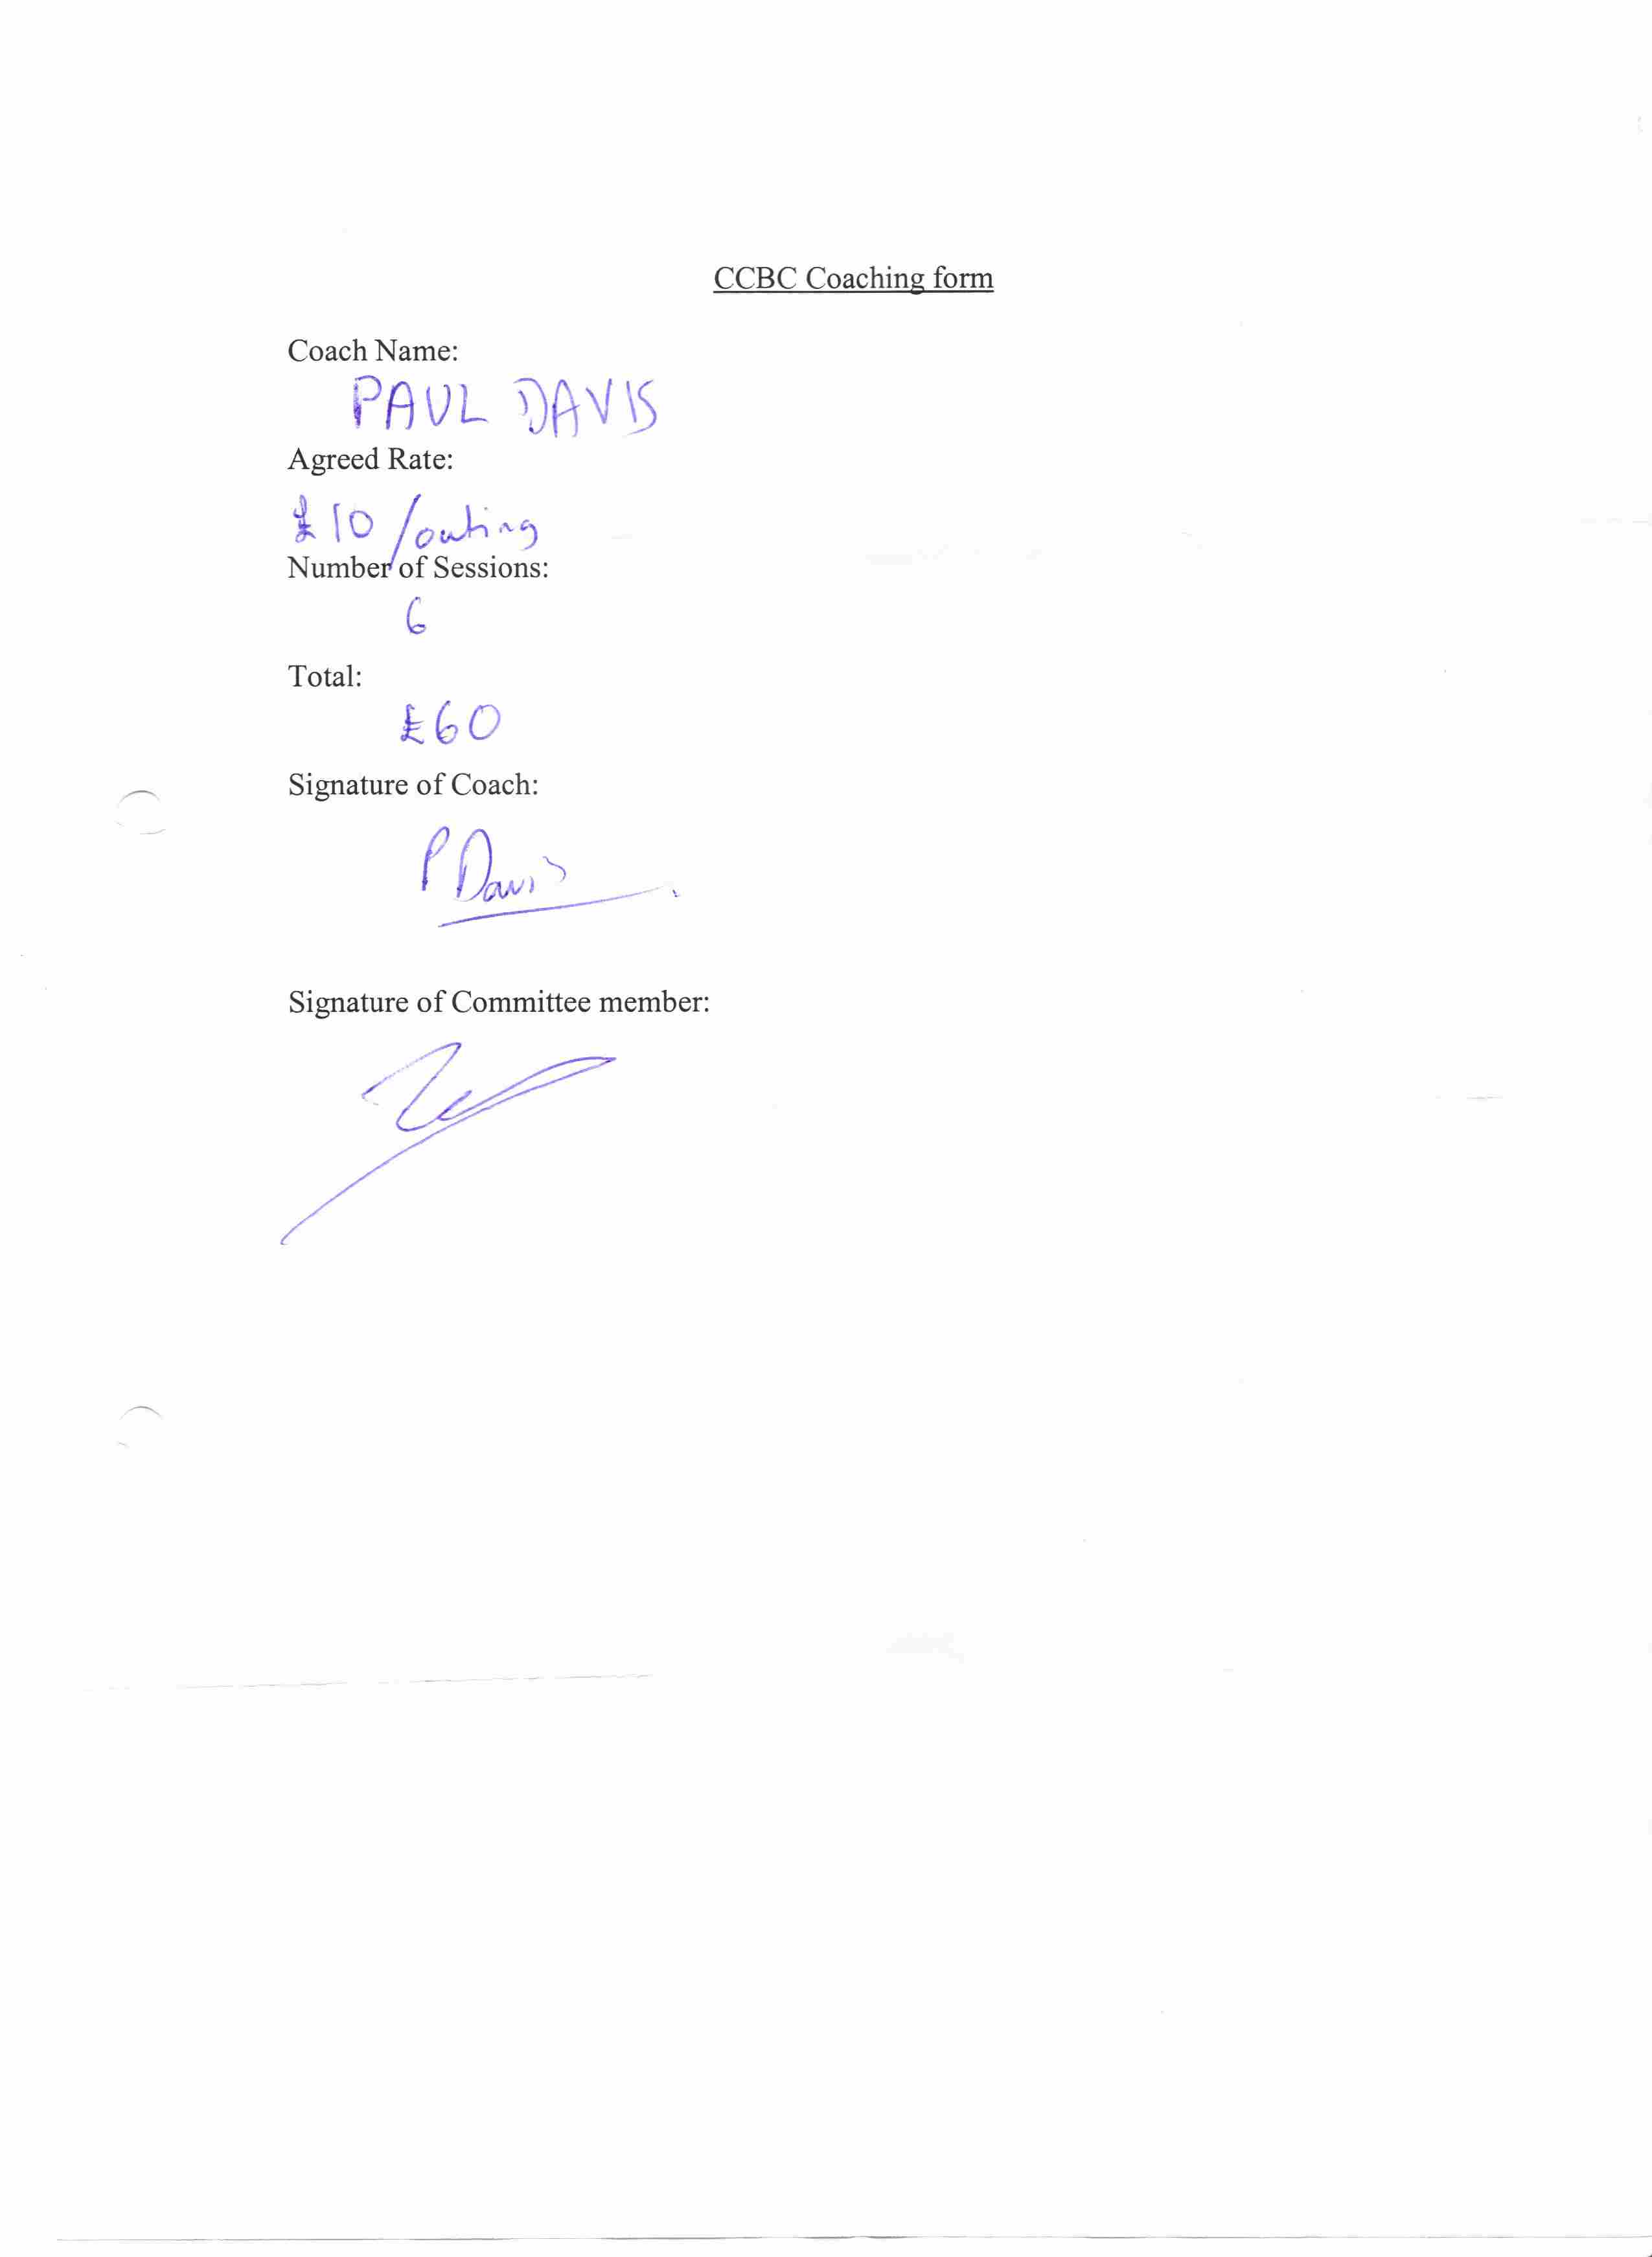 CCBC Coaching form
Coach Name:
PAUL DAVIS
Agreed Rate:
£10 /outing
Number of Sessions:
6
Total:
£60
Signature of Coach:
P Davis
Signature of Committee member: